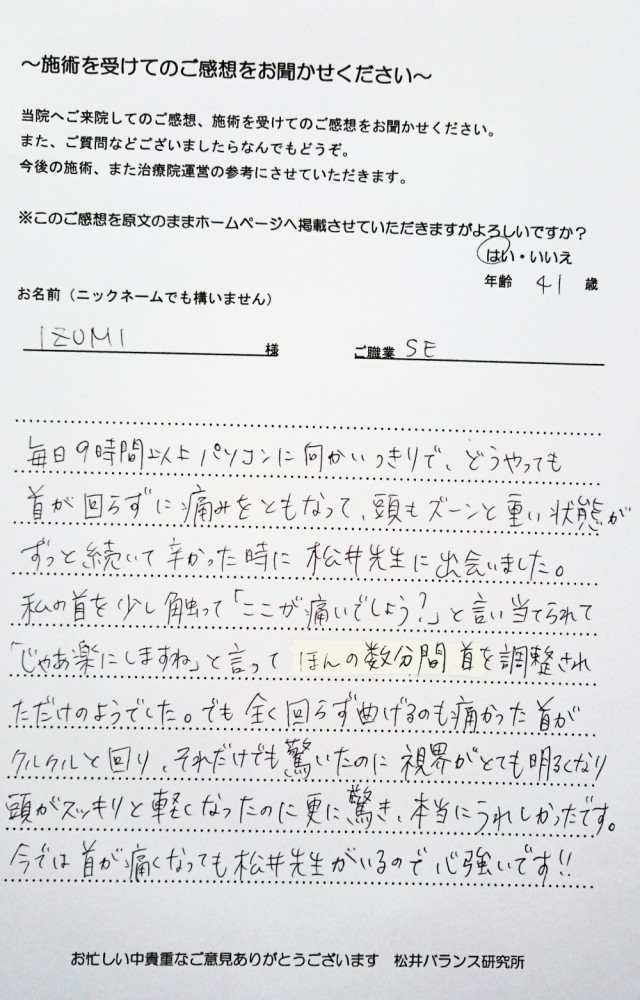 ～施術を受けてのご感想をお聞かせください～
当院へご来院してのご感想、施術を受けてのご感想をお聞かせください。
また、ご質問などございましたらなんでもどうぞ。
今後の施術、また治療院運営の参考にさせていただきます。
※このご感想を原文のままホームページへ掲載させていただきますがよろしいですか？
はい・いいえ
年齢 41 歳
お名前（ニックネームでも構いません）
IZUMI 様 ご職業 SE
毎日9時間以上パソコンに向かいっきりで、どうやっても
首が回らずに痛みをともなって、頭もズーンと重い状態が
ずっと続いて辛かった時に松井先生に出会いました。
私の首を少し触って「ここが痛いでしょう？」と言い当てられて
「じゃあ楽にしますね」と言ってほんの数分間首を調整され
ただけのようでした。でも全く回らず曲げるのも痛かった首が
クルクルと回り、それだけでも驚いたのに視界がとても明るくなり
頭がスッキリと軽くなったのに更に驚き、本当にうれしかったです。
今では首が痛くなっても松井先生がいるので心強いです!!
お忙しい中貴重なご意見ありがとうございます 松井バランス研究所